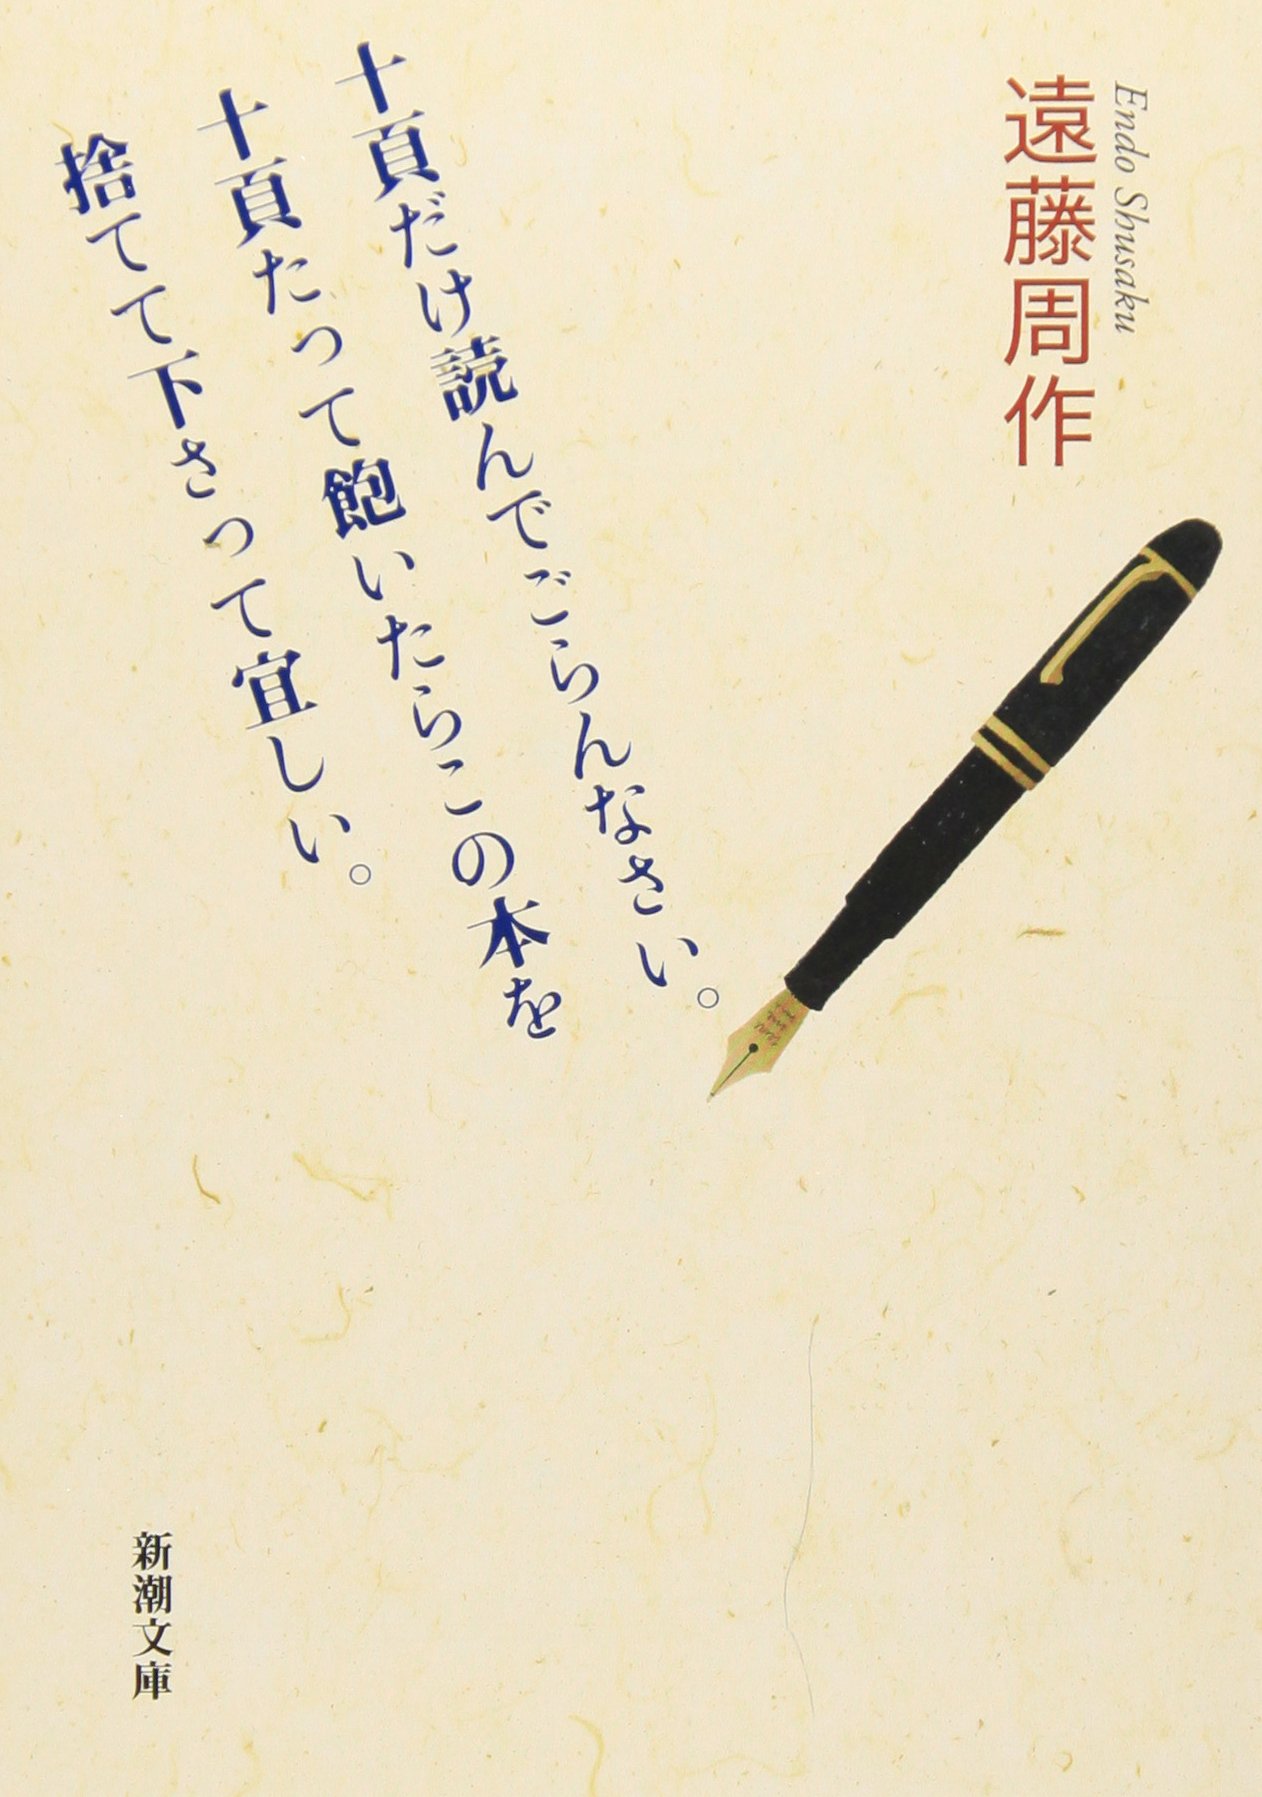 Endo Shusaku
遠藤周作
十頁だけ読んでごらんなさい。
十頁たって飽いたらこの本を
捨てて下さって宜しい。
新潮文庫